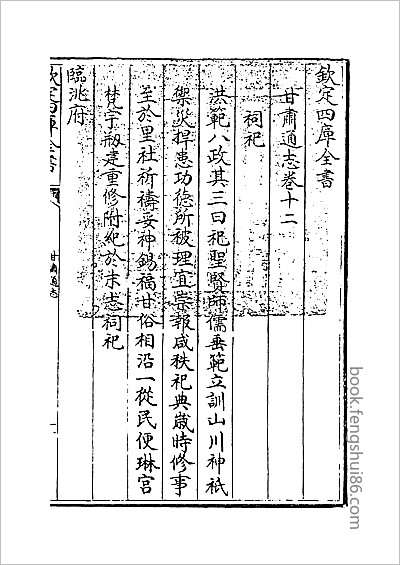 欽定四庫全書
甘肅通志卷十二
祠祀
洪範八政其三曰祀聖賢師儒垂範立訓山川神祇
禦災捍患功德所被理宜崇報咸秩祀典歲時修事
至於里社祈禱妥神錫福甘俗相沿一從民便琳宫
梵宇剏建重修附紀於末志祠祀
臨洮府
欽定四庫全書
甘肅通志
book.fengshui86.com